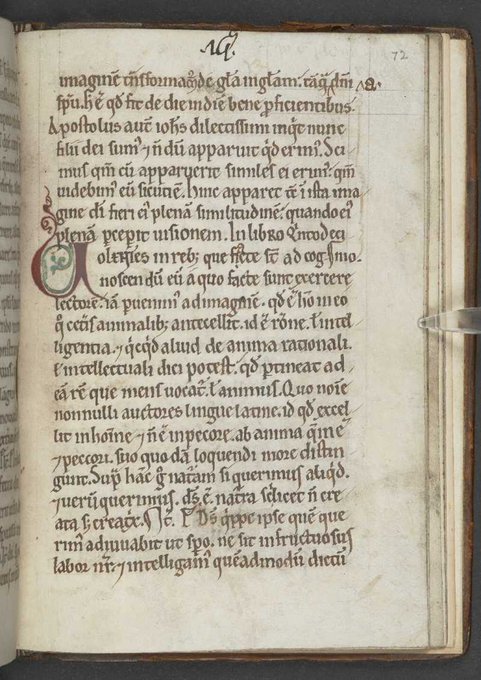 72
imaginē trīsformam᷒ de glā inglam. tāq̄ dm̄
spū. h̄ ē qd̄ fit de die indiē bene p̄ficientibus.
Apostolus aut̄ ioħs dilectissim inqt nunc
filii dei sum᷒ ⁊ n̄ dū apparuit qd̄ erim᷒. Sci
mus qm̄ cū apparuerit similes ei erim᷒. qm̄
uidebim᷒ eū sicuti ē. Hinc apparet tc̄ ī ista ima
gine dī fieri ei᷒ plenā similitudinē. quando ei᷒
plenā pceperit uisionem. In libro Qntodeci
Volentes in reb; que facte st̄ ad cog̅ mo
noscendū eū a quo facte sunt exercere
lectorē. iā puenim᷒ ad imaginē. qd̄ ē hō in eo
q̄ cet̄is animalib; antecellit. id ē rōne. ł intel
ligentia. ⁊ qcqd aliud de anima rationali.
ł intellectuali dici potest. qd̄ ptineat ad
eā rē que mens uocat̄. ł animus. Quo noīe
nonnulli auctores lingue latine. id qd̄ excel
lit in hoīne. ⁊ n̄ ē in pecore. ab anima q̄ īnē
⁊ peccori. suo quodā loquendi more distin
gunt. Sup̄ hāc g̊ nat̄am si querimus aliqd̄.
⁊ uerū querimus. ds̄ ē. nat̄ra scilicet n̄ cre
ata s; creat̄x.
Ds̄ qppe ipse quē que
rim᷒ adiuuabit ut spo. ne sit infructuosus
labor nr̄. ⁊ intelligam᷒ quēadmodū dictū